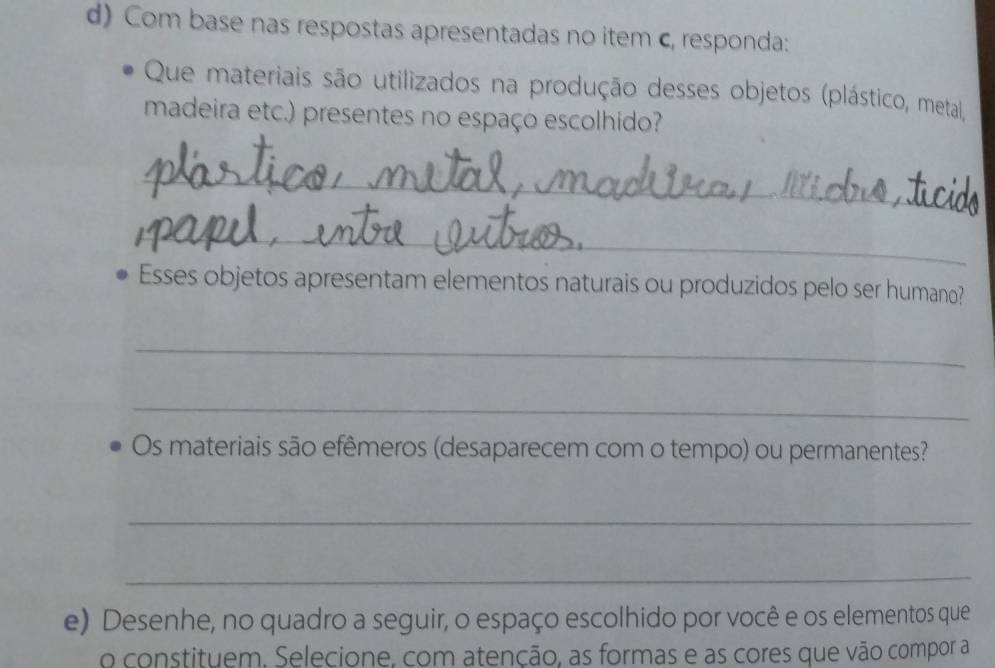 d) Com base nas respostas apresentadas no item c, responda:
• Que materiais são utilizados na produção desses objetos (plástico, metal,
madeira etc.) presentes no espaço escolhido?
plástico, metal, madeira, vidro, ticido
, papel, entre outros.
• Esses objetos apresentam elementos naturais ou produzidos pelo ser humano?
• Os materiais são efêmeros (desaparecem com o tempo) ou permanentes?
e) Desenhe, no quadro a seguir, o espaço escolhido por você e os elementos que
o constituem. Selecione, com atenção, as formas e as cores que vão compor a